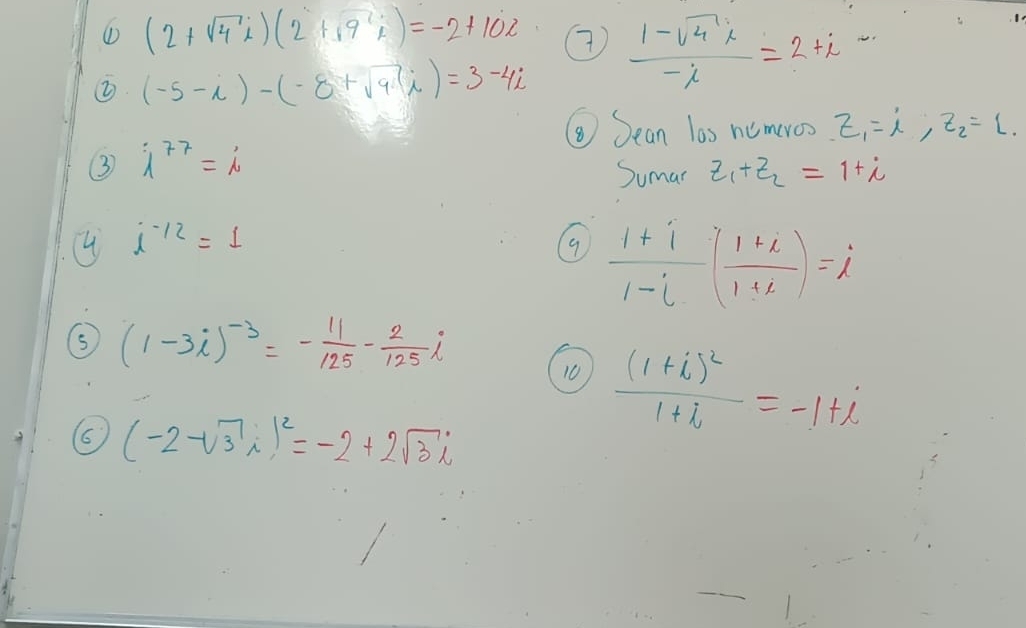 ① (2+√4 i)(2+√9 i)=-2+10i
② (-5-i)-(-8+√9 i)=3-4i
③ i⁷⁷ = i
④ i⁻¹² = 1
⑤ (1-3i)⁻³ = -11/125 - 2/125 i
⑥ (-2-√3 i)² = -2+2√3 i
⑦ (1-√4 i)/(-i) = 2+i
⑧ Sean los números Z₁=i ; Z₂=1.
Sumar Z₁+Z₂ = 1+i
⑨ (1+i)/(1-i) ((1+i)/(1+i)) = i
⑩ (1+i)²/(1+i) = -1+i